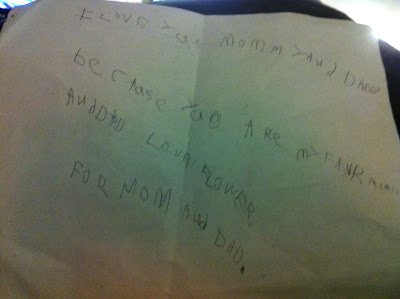 I LOVE YOO MOMMY And DADDY
BECTASE YOO ARE MY FAVR MOM
And DAD LOVE FLOWER
FOR MOM And DAD.